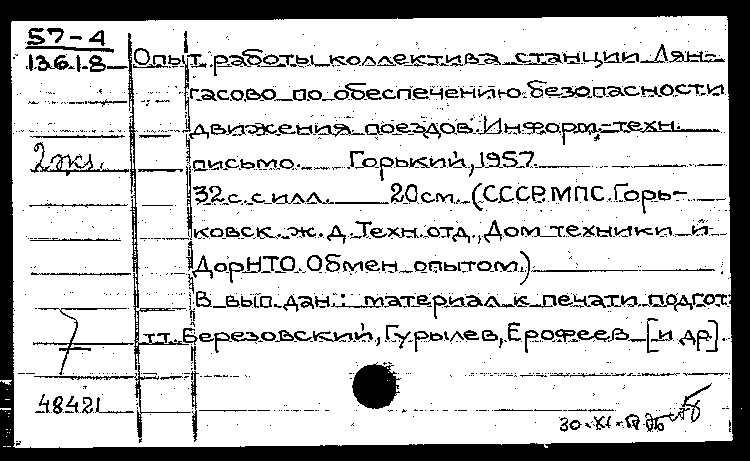 57-4
13618 Опыт работы коллектива станции Лян-
гасово по обеспечению безопасности
движения поездов. Информ.-техн.
2 экз. письмо. Горький, 1957.
32с. с илл. 20см. (СССР. МПС. Горь-
ковск. ж. д. Техн. отд., Дом техники и
ДорНТО. Обмен опытом.)
В вып. дан.: материал к печати подгот.
тт. Березовский, Гурылев, Ерофеев [и др].
48421
30-XI-